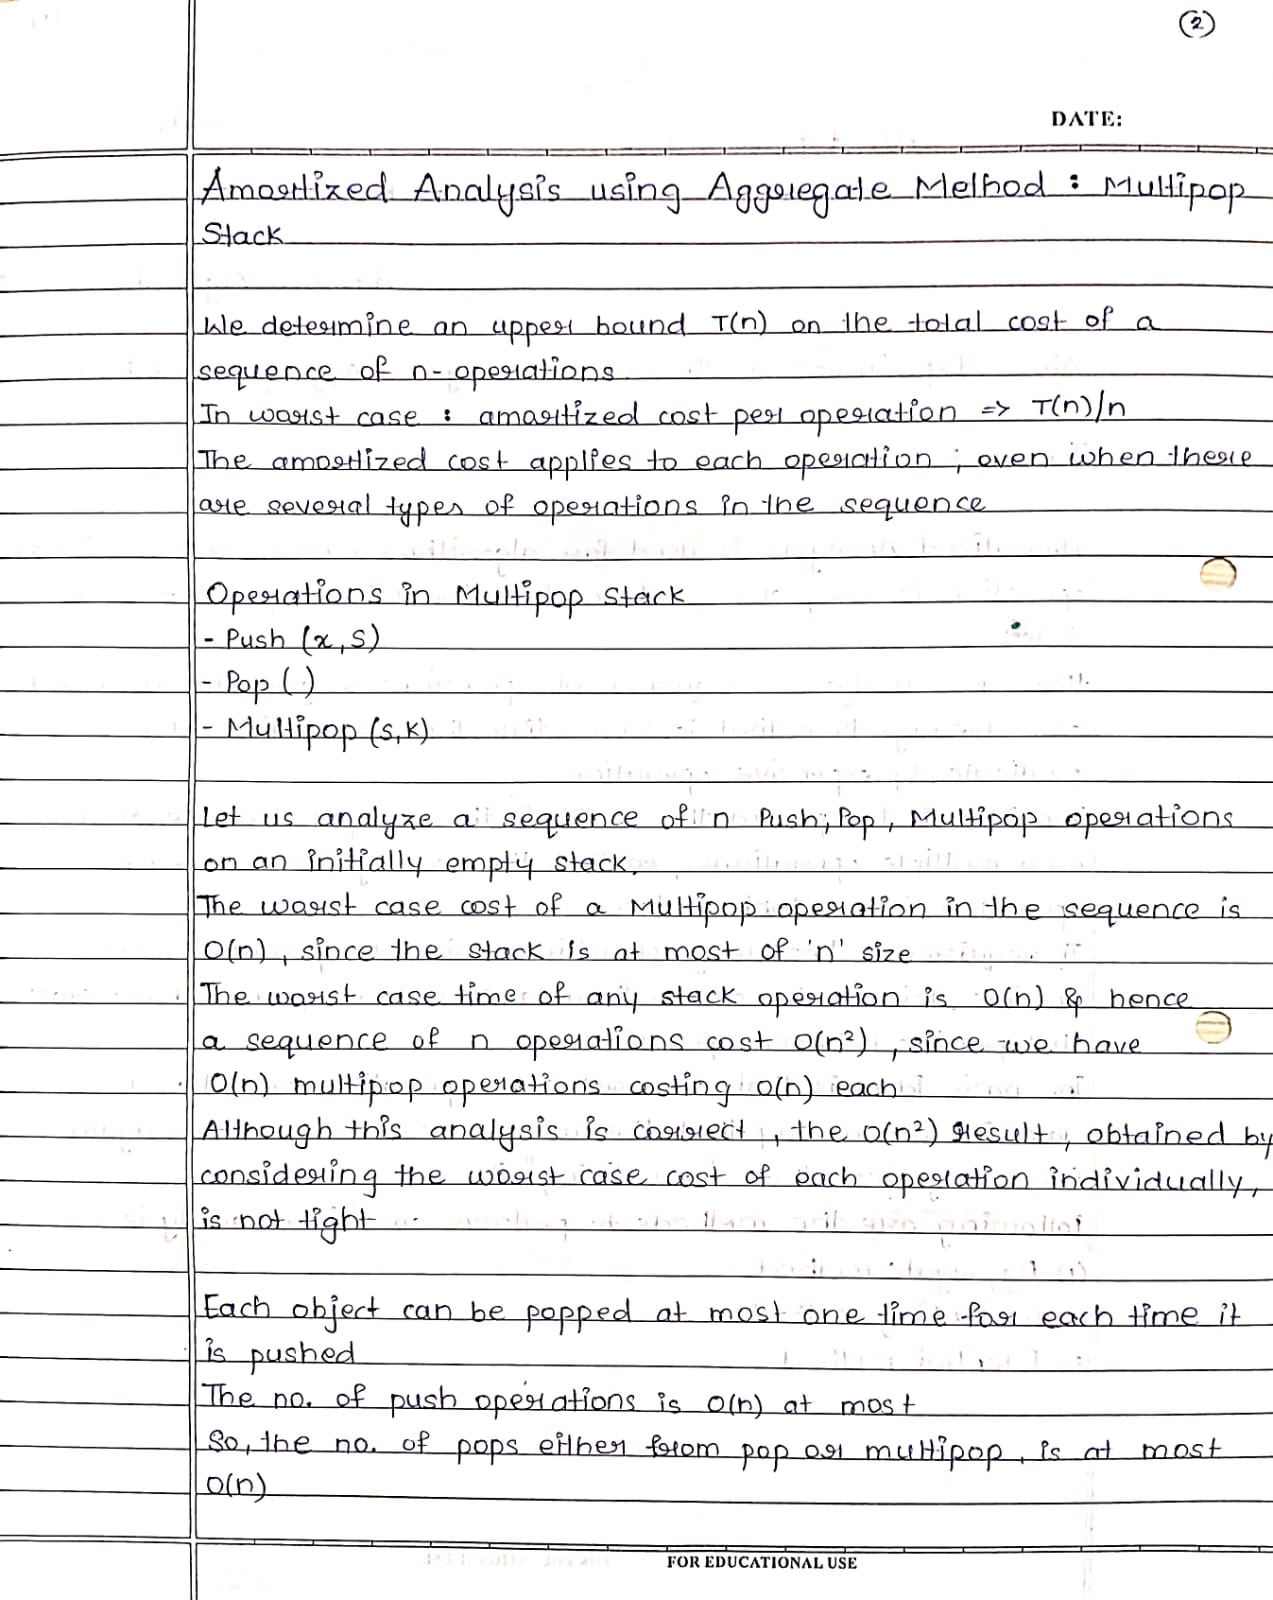 2
DATE:
Amortized Analysis using Aggregate Method : Multipop
Stack
We determine an upper bound T(n) on the total cost of a
sequence of n- operations
In worst case : amortized cost per operation => T(n)/n
The amortized cost applies to each operation, even when there
are several types of operations in the sequence
Operations in Multipop Stack
- Push (x,S)
- Pop ( )
- Multipop (S,K)
Let us analyze a sequence of n Push, Pop, Multipop operations
on an initially empty stack.
The worst case cost of a Multipop operation in the sequence is
O(n), since the stack is at most of 'n' size
The worst case time of any stack operation is O(n) & hence
a sequence of n operations cost O(n²), since we have
O(n) multipop operations costing O(n) each
Although this analysis is correct, the O(n²) result, obtained by
considering the worst case cost of each operation individually,
is not tight
Each object can be popped at most one time for each time it
is pushed
The no. of push operations is O(n) at most
So, the no. of pops either from pop or multipop, is at most
O(n)
FOR EDUCATIONAL USE